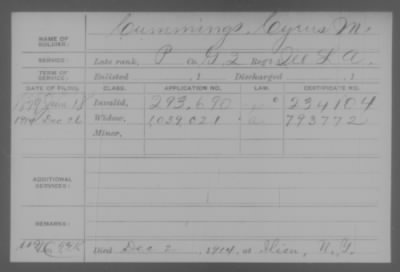 NAME OF SOLDIER: Cummings, Cyrus M.
SERVICE: Late rank, P Co. G, 2 Reg't
TERM OF SERVICE: Enlisted , 1 Discharged , 1
DATE OF FILING. CLASS. APPLICATION NO. LAW. CERTIFICATE NO.
1879 Jun 18 Invalid, 293,690 234104
1914 Dec 26 Widow, 1039,021 793772
Minor,
ADDITIONAL SERVICES:
REMARKS:
Died Dec 2, 1914, at Ilion, N.Y.